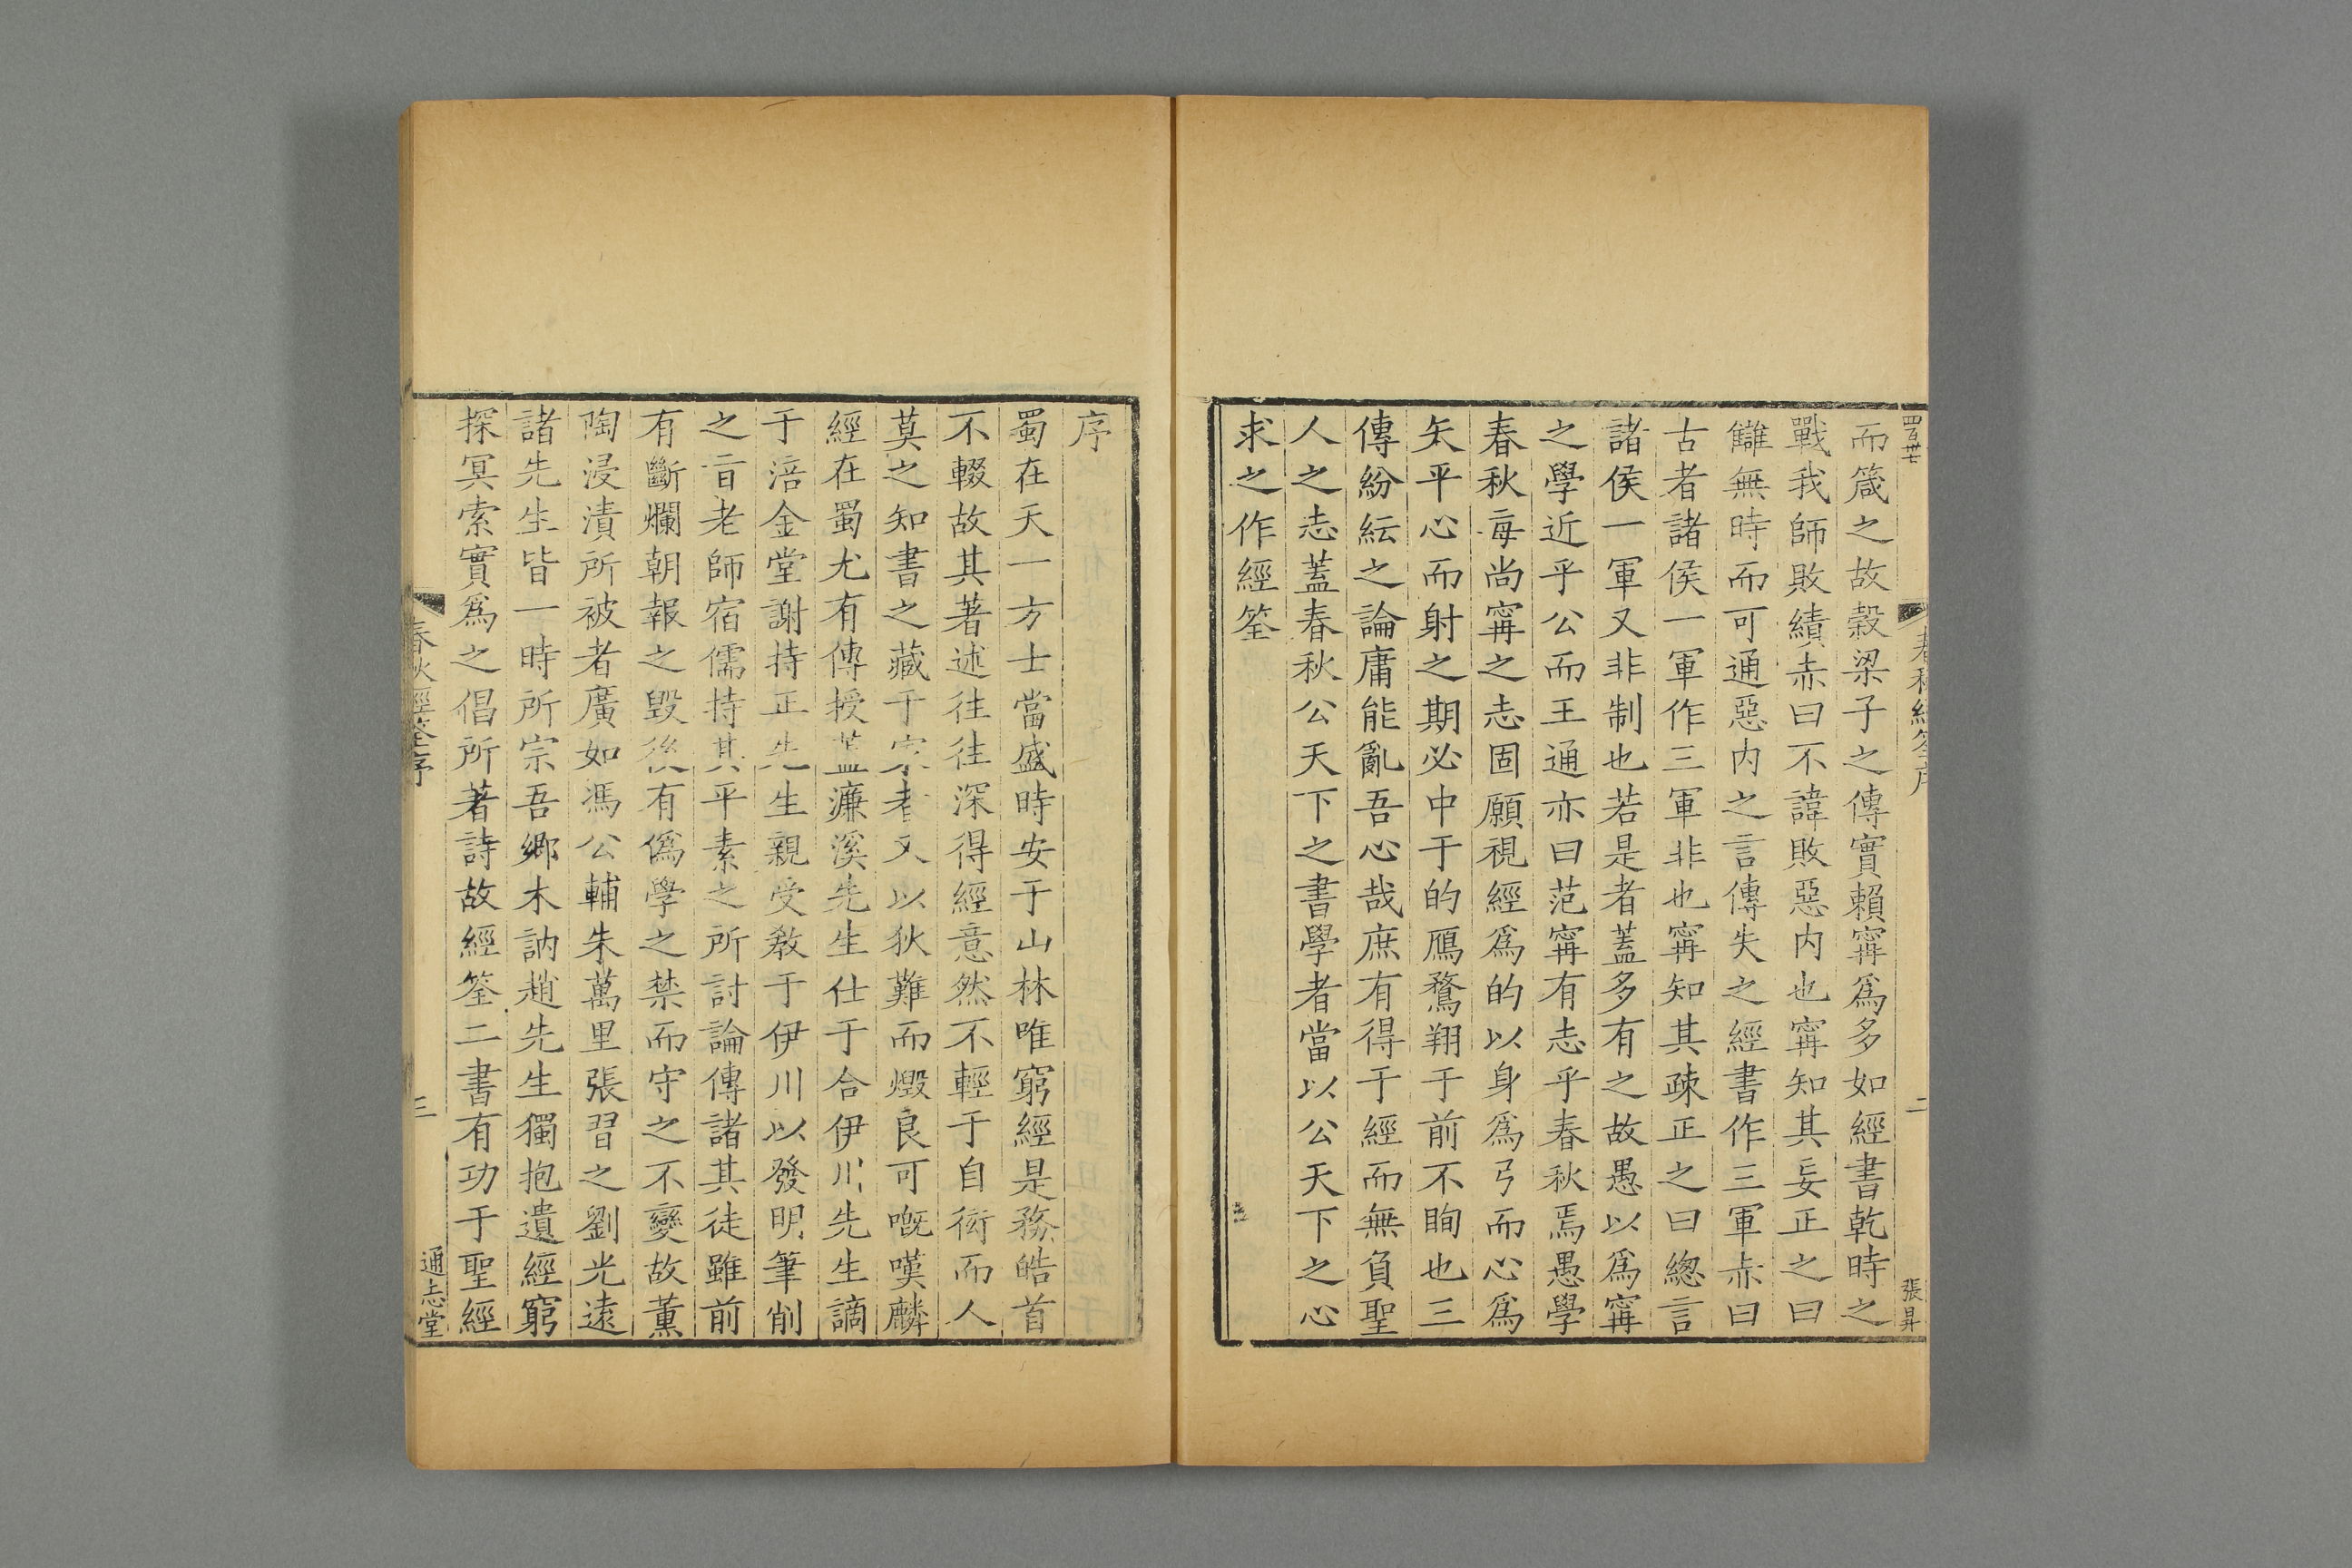 而箴之故穀梁子之傳實賴寗爲多如經書乾時之
戰我師敗績赤曰不諱敗惡内也寗知其妄正之曰
讎無時而可通惡内之言傳失之經書作三軍赤曰
古者諸侯一軍作三軍非也寗知其疎正之曰總言
諸侯一軍又非制也若是者蓋多有之故愚以爲寗
之學近乎公而王通亦曰范寗有志乎春秋焉愚學
春秋每尚寗之志固願視經爲的以身爲弓而心爲
矢平心而射之期必中于的鴈鶩翔于前不眴也三
傳紛紜之論庸能亂吾心哉庶有得于經而無負聖
人之志蓋春秋公天下之書學者當以公天下之心
求之作經筌
春秋經筌序
二
張昇
序
蜀在天一方士當盛時安于山林唯窮經是務皓首
不輟故其著述往往深得經意然不輕于自衒而人
莫之知書之藏于家者又以狄難而燬良可嘅嘆麟
經在蜀尤有傳授蓋濂溪先生仕于合伊川先生謫
于涪金堂謝持正先生親受教于伊川以發明筆削
之旨老師宿儒持其平素之所討論傳諸其徒雖前
有斷爛朝報之毀後有僞學之禁而守之不變故薰
陶浸漬所被者廣如馮公輔朱萬里張習之劉光遠
諸先生皆一時所宗吾鄉木訥趙先生獨抱遺經窮
探冥索實爲之倡所著詩故經筌二書有功于聖經
春秋經筌序
三
通志堂